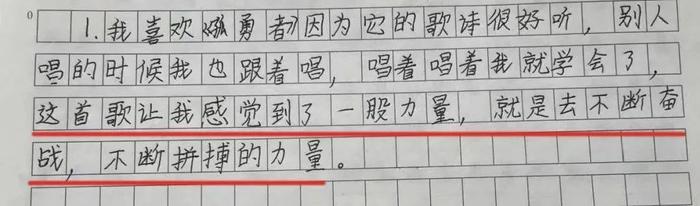 1.我喜欢《孤勇者》因为它的歌诗很好听,别人
唱的时候我也跟着唱,唱着唱着我就学会了,
这首歌让我感觉到了一股力量,就是去不断奋
战,不断拼搏的力量。